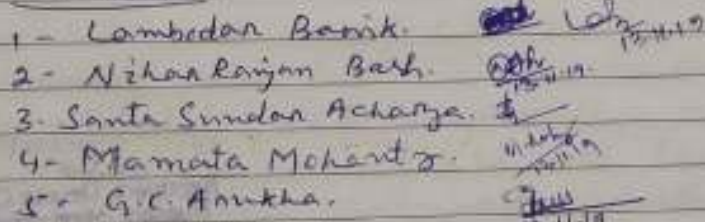 1- Lambodar Barik. 13.11.19
2- Nihar Ranjan Bash. 13.11.19.
3. Santa Sundar Acharya.
4- Mamata Mohanty. 13/11/19
5- G.C. Anukha.